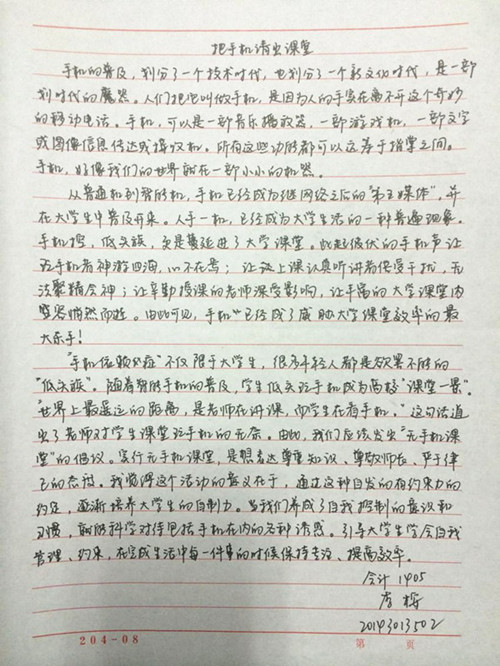 把手机请出课堂
手机的普及，划分了一个技术时代，也划分了一个新文化时代，是一部
划时代的魔器。人们把它叫做手机，是因为人的手实在离不开这个奇妙
的移动电话。手机，可以是一部音乐播放器，一部游戏机，一部文字
或图像信息传达或接收机。所有这些功能都可以这奉于指掌之间。
手机，好像我们的世界就在一部小小的机器。
从普通机到智能机，手机已经成为继网络之后的"第五媒体"，并
在大学生中普及开来。人手一机，已经成为大学生活的一种普遍现象。
手机控，低头族，更是蔓延进了大学课堂。此起彼伏的手机声让
玩手机者神游四海，心不在焉；让欲上课认真听讲者倍受干扰，无
法聚精会神；让辛勤授课的老师深受影响，让丰富的大学课堂内
容悄然而逝。由此可见，手机"已经成了威胁大学课堂效率的最
大杀手！
"手机依赖症"不仅限于大学生，很多年轻人都是欲罢不能的
"低头族"。随着智能手机的普及，学生低头玩手机成为高校"课堂一景"。
"世界上最遥远的距离，是老师在讲课，而学生在看手机。"这句话道
出了老师对学生课堂玩手机的无奈。由此，我们应该发出"无手机课
堂"的倡议。实行无手机课堂，是想表达尊重知识、尊敬师长、严于律
己的态度。我觉得这个活动的意义在于，通过这种自发的有约束力的
约定，逐渐培养大学生的自制力。当我们养成了自我控制的意识和
习惯，就能科学对待包括手机在内的各种诱惑。引导大学生学会自我
管理、约束，在完成生活中每一件事的时候保持专注、提高效率。
会计1405
李梅
20143013502
204-08 第 页